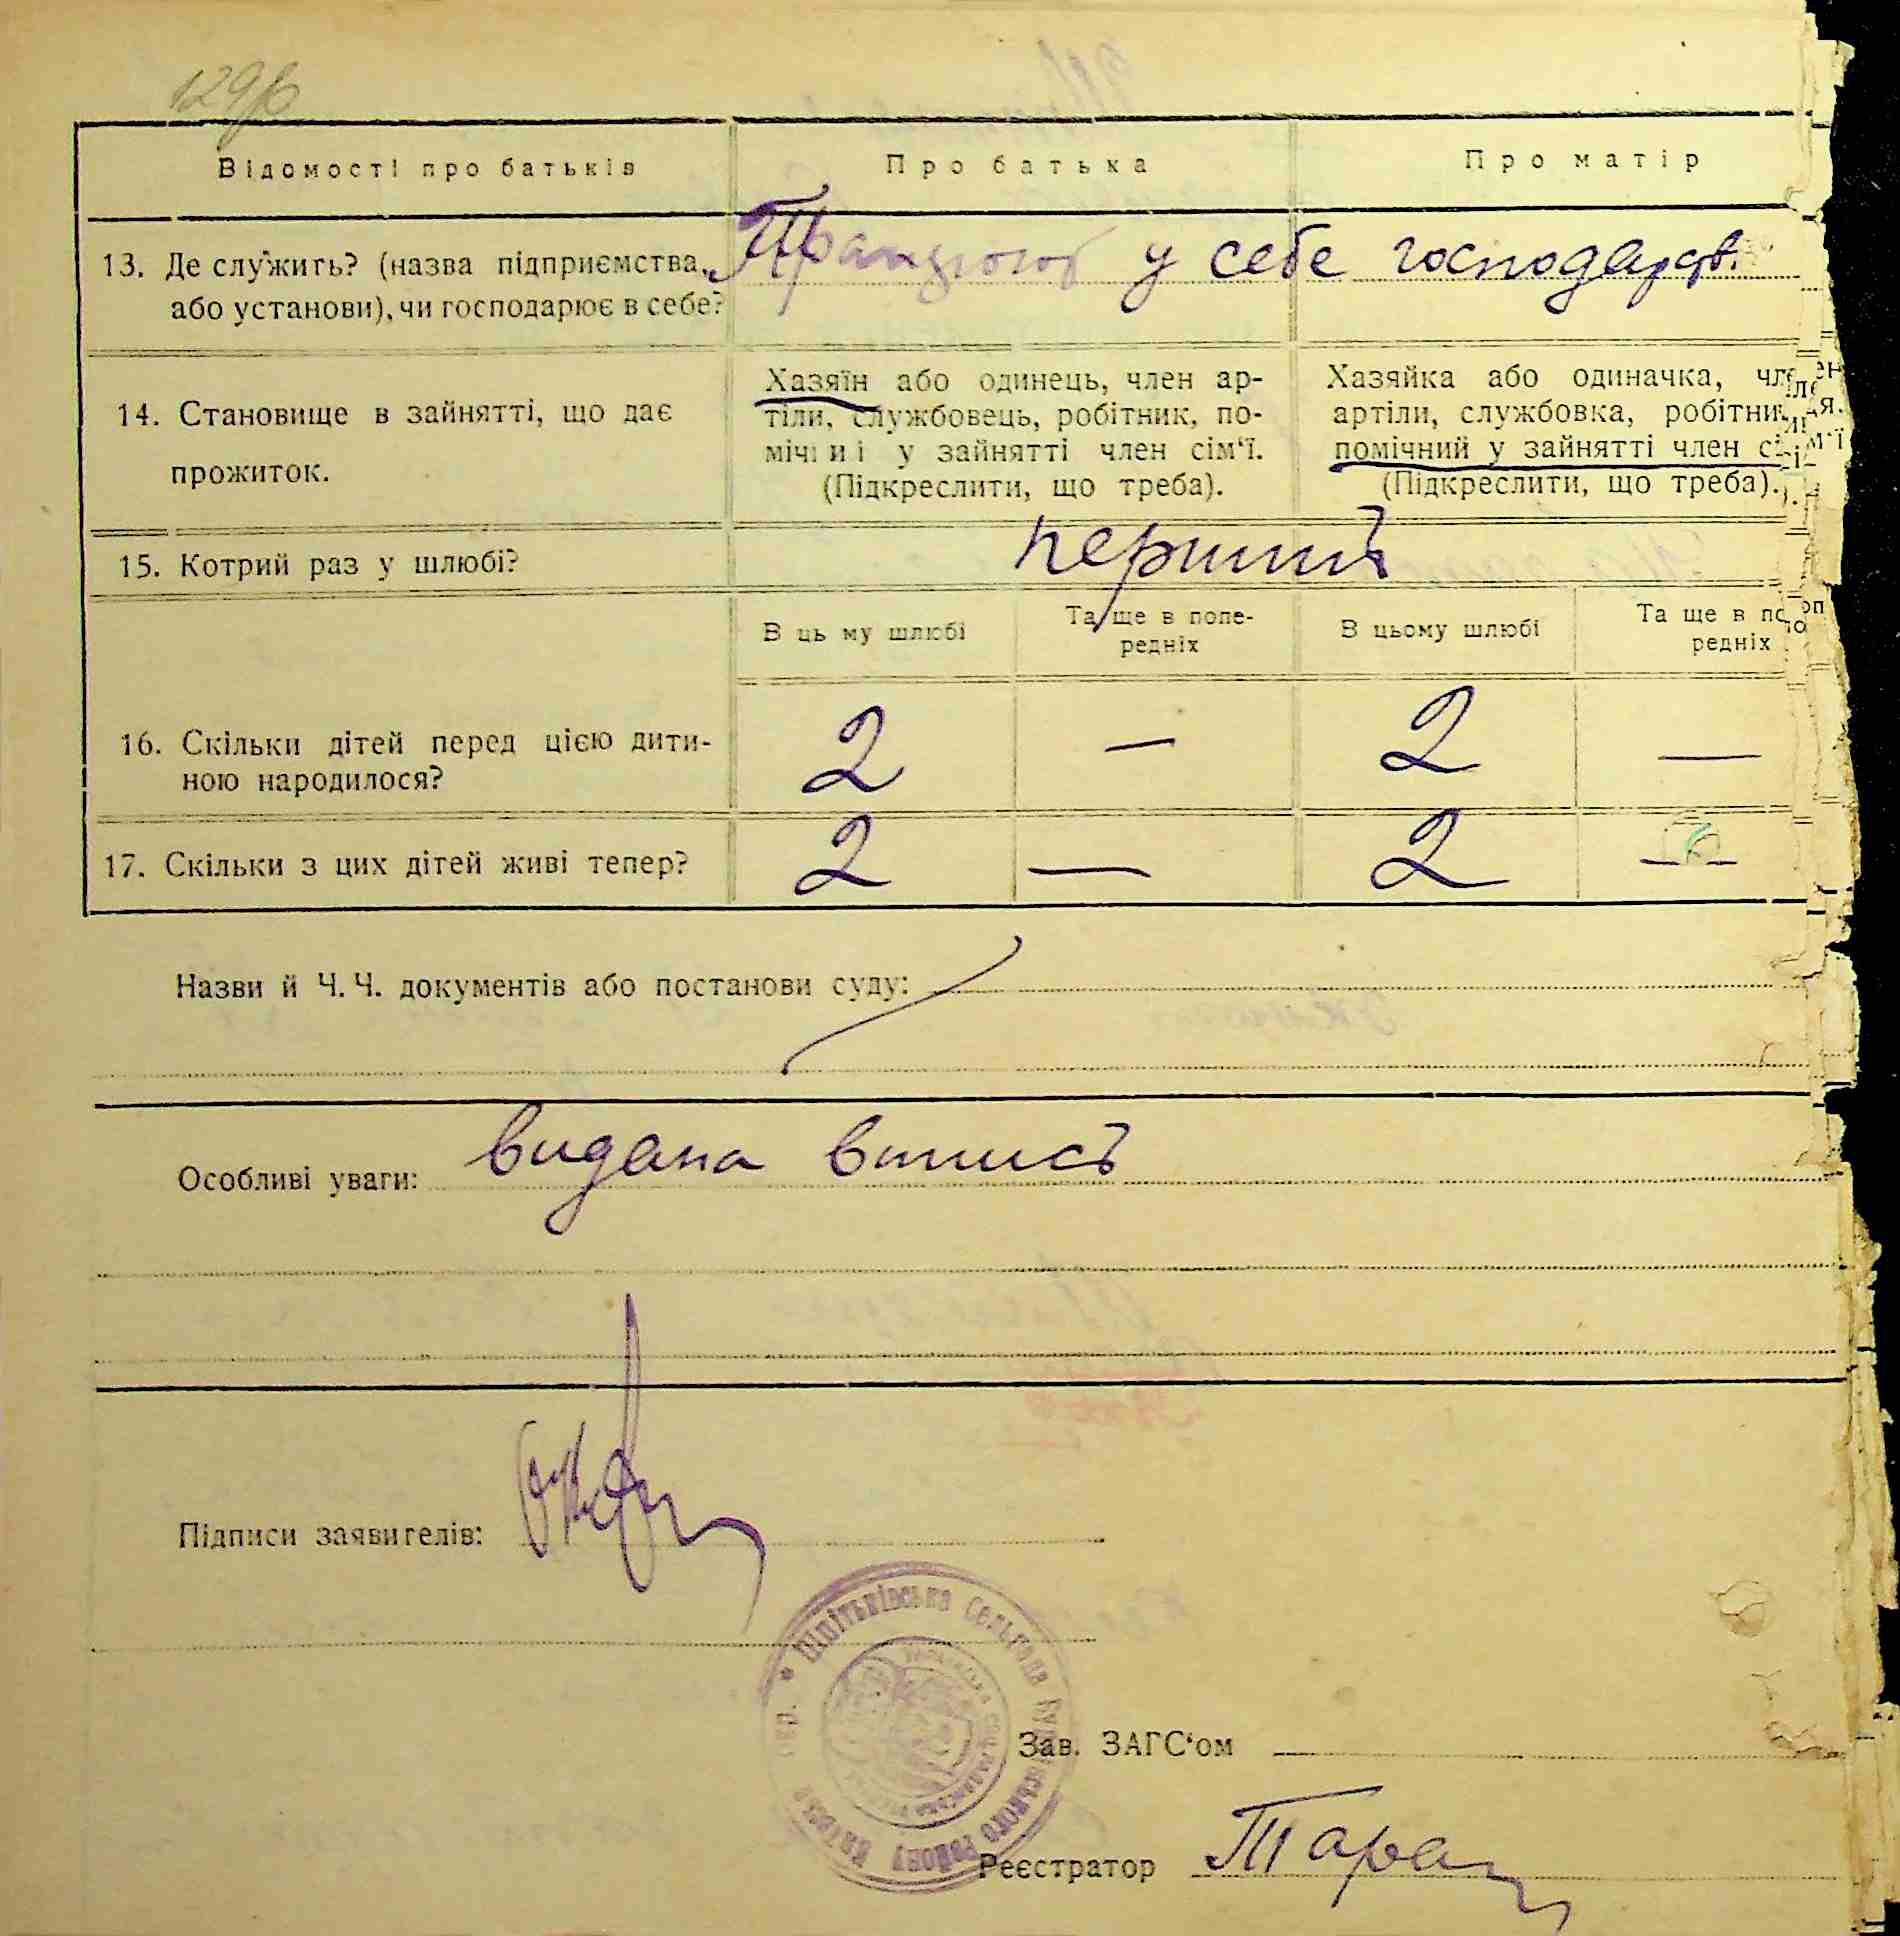 Відомості про батьків
Про батька
Про матір
13. Де служить? (назва підприємства, або установи), чи господарює в себе?
Працюют у себе господарств.
14. Становище в зайнятті, що дає
прожиток.
Хазяїн або одинець, член ар-
тіли, службовець, робітник, по-
мічний у зайнятті член сім'ї.
(Підкреслити, що треба).
Хазяйка або одиначка, член
артіли, службовка, робітниця,
помічний у зайнятті член сім'ї
(Підкреслити, що треба).
15. Котрий раз у шлюбі?
перший
В цьому шлюбі
Та ще в попе-
редніх
В цьому шлюбі
Та ще в попе-
редніх
16. Скільки дітей перед цією дити-
ною народилося?
2 — 2 —
17. Скільки з цих дітей живі тепер?
2 — 2 —
Назви й Ч. Ч. документів або постанови суду:
Особливі уваги: видана випись
Підписи заявителів:
Зав. ЗАГС'ом
Реєстратор Таран